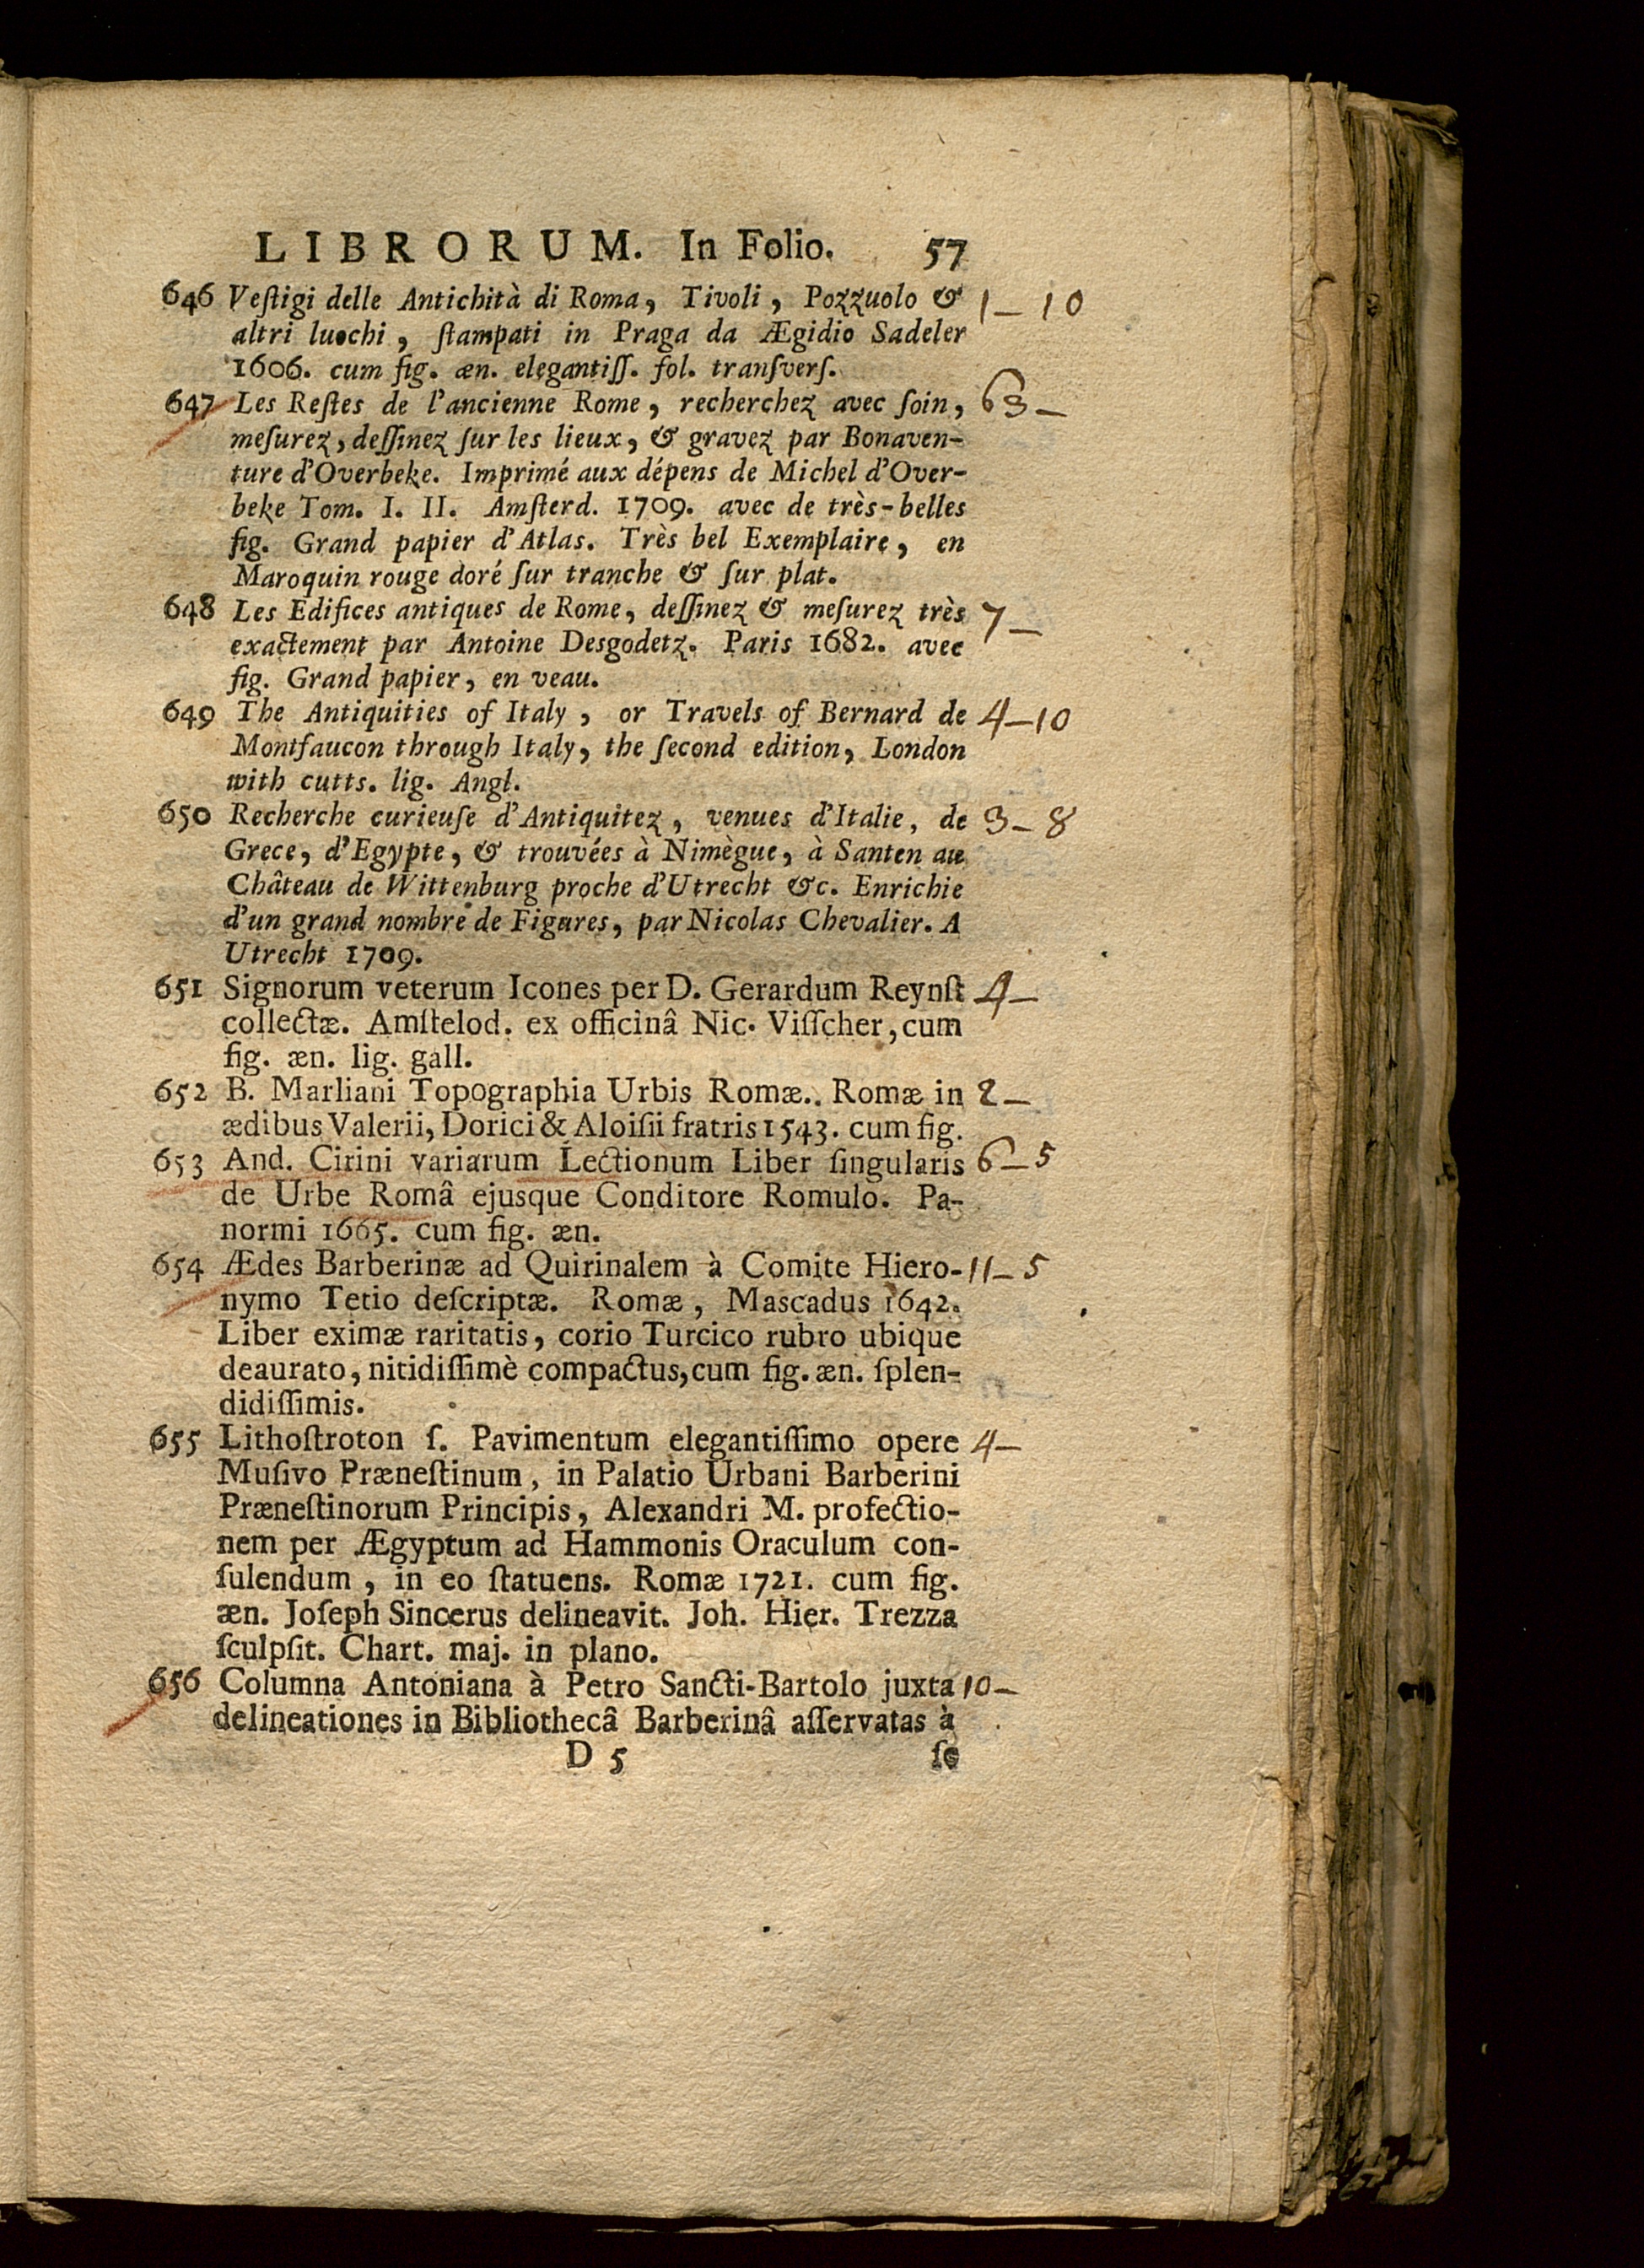 LIBRORUM. In Folio. 57
646 Veſtigi delle Antichità di Roma, Tivoli, Pozzuolo & 1 — 10
altri luochi, ſtampati in Praga da Ægidio Sadeler
1606. cum fig. æn. elegantiſſ. fol. tranſverſ.
647 Les Reſtes de l'ancienne Rome, recherchez avec ſoin, 63 —
meſurez, deſſinez ſur les lieux, & gravez par Bonaven-
ture d'Overbeke. Imprimé aux dépens de Michel d'Over-
beke Tom. I. II. Amſterd. 1709. avec de très-belles
fig. Grand papier d'Atlas. Très bel Exemplaire, en
Maroquin rouge doré ſur tranche & ſur plat.
648 Les Edifices antiques de Rome, deſſinez & meſurez très 7 —
exactement par Antoine Desgodetz. Paris 1682. avec
fig. Grand papier, en veau.
649 The Antiquities of Italy, or Travels of Bernard de 4 — 10
Montfaucon through Italy, the ſecond edition, London
with cutts. lig. Angl.
650 Recherche curieuſe d'Antiquitez, venues d'Italie, de 3 — 8
Grece, d'Egypte, & trouvées à Nimègue, à Santen au
Château de Wittenburg proche d'Utrecht &c. Enrichie
d'un grand nombre de Figures, par Nicolas Chevalier. A
Utrecht 1709.
651 Signorum veterum Icones per D. Gerardum Reynſt 4 —
collectæ. Amſtelod. ex officinâ Nic. Viſſcher, cum
fig. æn. lig. gall.
652 B. Marliani Topographia Urbis Romæ.. Romæ in 2 —
ædibus Valerii, Dorici & Aloiſii fratris 1543. cum fig.
653 And. Cirini variarum Lectionum Liber ſingularis 6 — 5
de Urbe Româ ejusque Conditore Romulo. Pa-
normi 1665. cum fig. æn.
654 Ædes Barberinæ ad Quirinalem à Comite Hiero- 11 — 5
nymo Tetio deſcriptæ. Romæ, Mascadus 1642.
Liber eximæ raritatis, corio Turcico rubro ubique
deaurato, nitidiſſimè compactus, cum fig. æn. ſplen-
didiſſimis.
655 Lithoſtroton ſ. Pavimentum elegantiſſimo opere 4 —
Muſivo Præneſtinum, in Palatio Urbani Barberini
Præneſtinorum Principis, Alexandri M. profectio-
nem per Ægyptum ad Hammonis Oraculum con-
ſulendum, in eo ſtatuens. Romæ 1721. cum fig.
æn. Joſeph Sincerus delineavit. Joh. Hier. Trezza
ſculpſit. Chart. maj. in plano.
656 Columna Antoniana à Petro Sancti-Bartolo juxta 10 —
delineationes in Bibliothecâ Barberinâ aſſervatas à
D 5 ſe